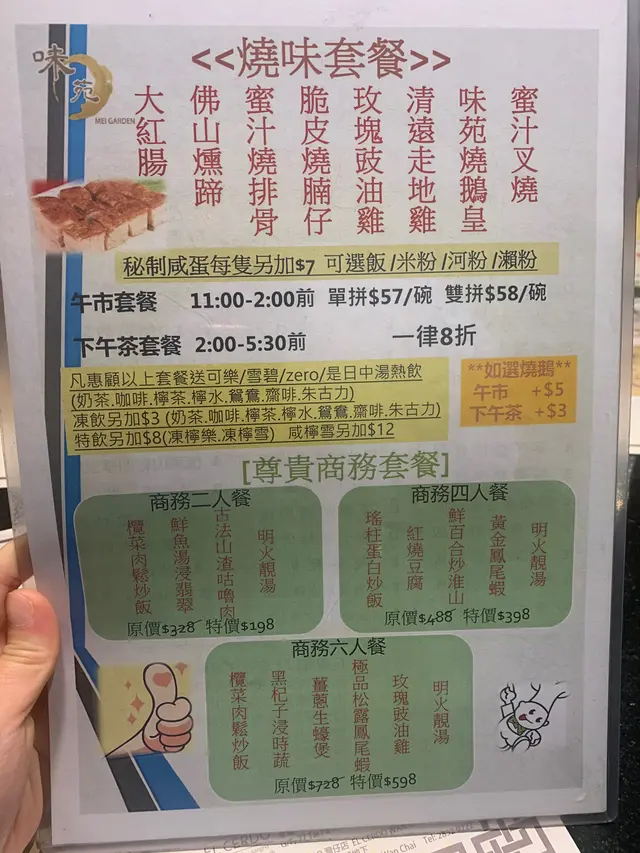 味苑
MEI GARDEN
<<燒味套餐>>
蜜汁叉燒
味苑燒鵝皇
清遠走地雞
玫瑰豉油雞
脆皮燒腩仔
蜜汁燒排骨
佛山燻蹄
大紅腸
秘制咸蛋每隻另加$7 可選飯/米粉/河粉/瀨粉
午市套餐 11:00-2:00前 單拼$57/碗 雙拼$58/碗
下午茶套餐 2:00-5:30前 一律8折
凡惠顧以上套餐送可樂/雪碧/zero/是日中湯熱飲
(奶茶.咖啡.檸茶.檸水.鴛鴦.齋啡.朱古力)
凍飲另加$3 (奶茶.咖啡.檸茶.檸水.鴛鴦.齋啡.朱古力)
特飲另加$8(凍檸樂.凍檸雪) 咸檸雪另加$12
**如選燒鵝**
午市 +$5
下午茶 +$3
[尊貴商務套餐]
商務二人餐
明火靚湯
古法山渣咕嚕肉
鮮魚湯浸翡翠
欖菜肉鬆炒飯
原價$328 特價$198
商務四人餐
明火靚湯
黃金鳳尾蝦
鮮百合炒淮山
紅燒豆腐
瑤柱蛋白炒飯
原價$488 特價$398
商務六人餐
明火靚湯
玫瑰豉油雞
極品松露鳳尾蝦
薑蔥生蠔煲
黑杞子浸時蔬
欖菜肉鬆炒飯
原價$728 特價$598